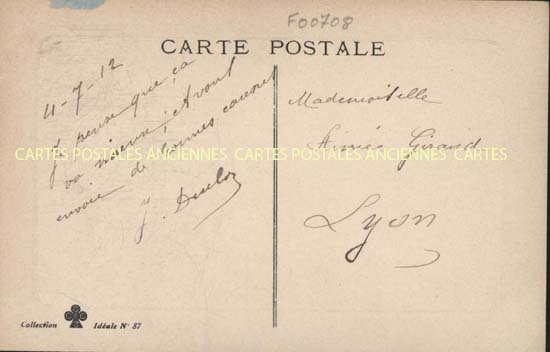 F00708
CARTE POSTALE
4-7-12
Je pense que ça
va mieux, et vous
envoie de bonnes caresses
J.
Mademoiselle
Aimée Giraud
Lyon
CARTES POSTALES ANCIENNES CARTES POSTALES ANCIENNES CARTES
Collection Idéale N° 87